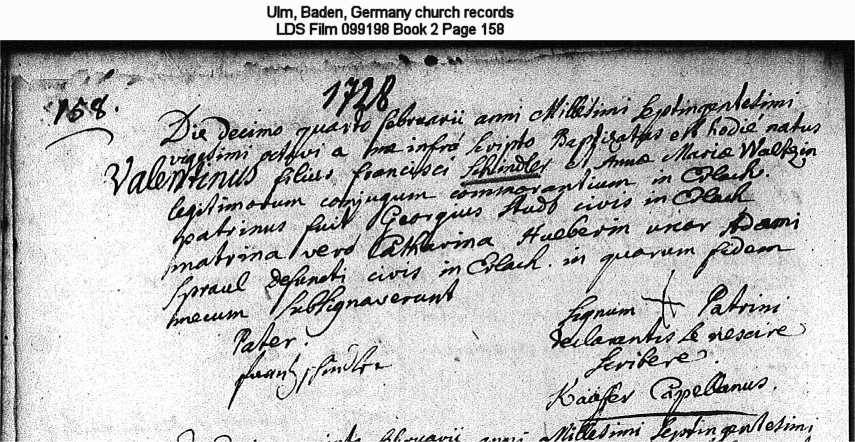 Ulm, Baden, Germany church records
LDS Film 099198 Book 2 Page 158
1728
158.
Die decimo quarto februarii anni Millesimi Septingentesimi
vigesimi octavi a me infrá scripto Baptizatus est hodié natus
Valentinus filius francisci Schindler et Annæ Mariæ Waltzin
legitimorum conjugum commorantium in Erlach.
patrinus fuit Georgius Studt civis in Erlach
matrina veró Catharina Hueberin uxor Adami
Spraul defuncti civis in Erlach. in quorum fidem
mecum subsignaverunt
Pater.
frantz schindler
Signum + Patrini
declarantis se nescire
scribere.
Kaüffer Capellanus.
februarii anni Millesimi Septingentesimi